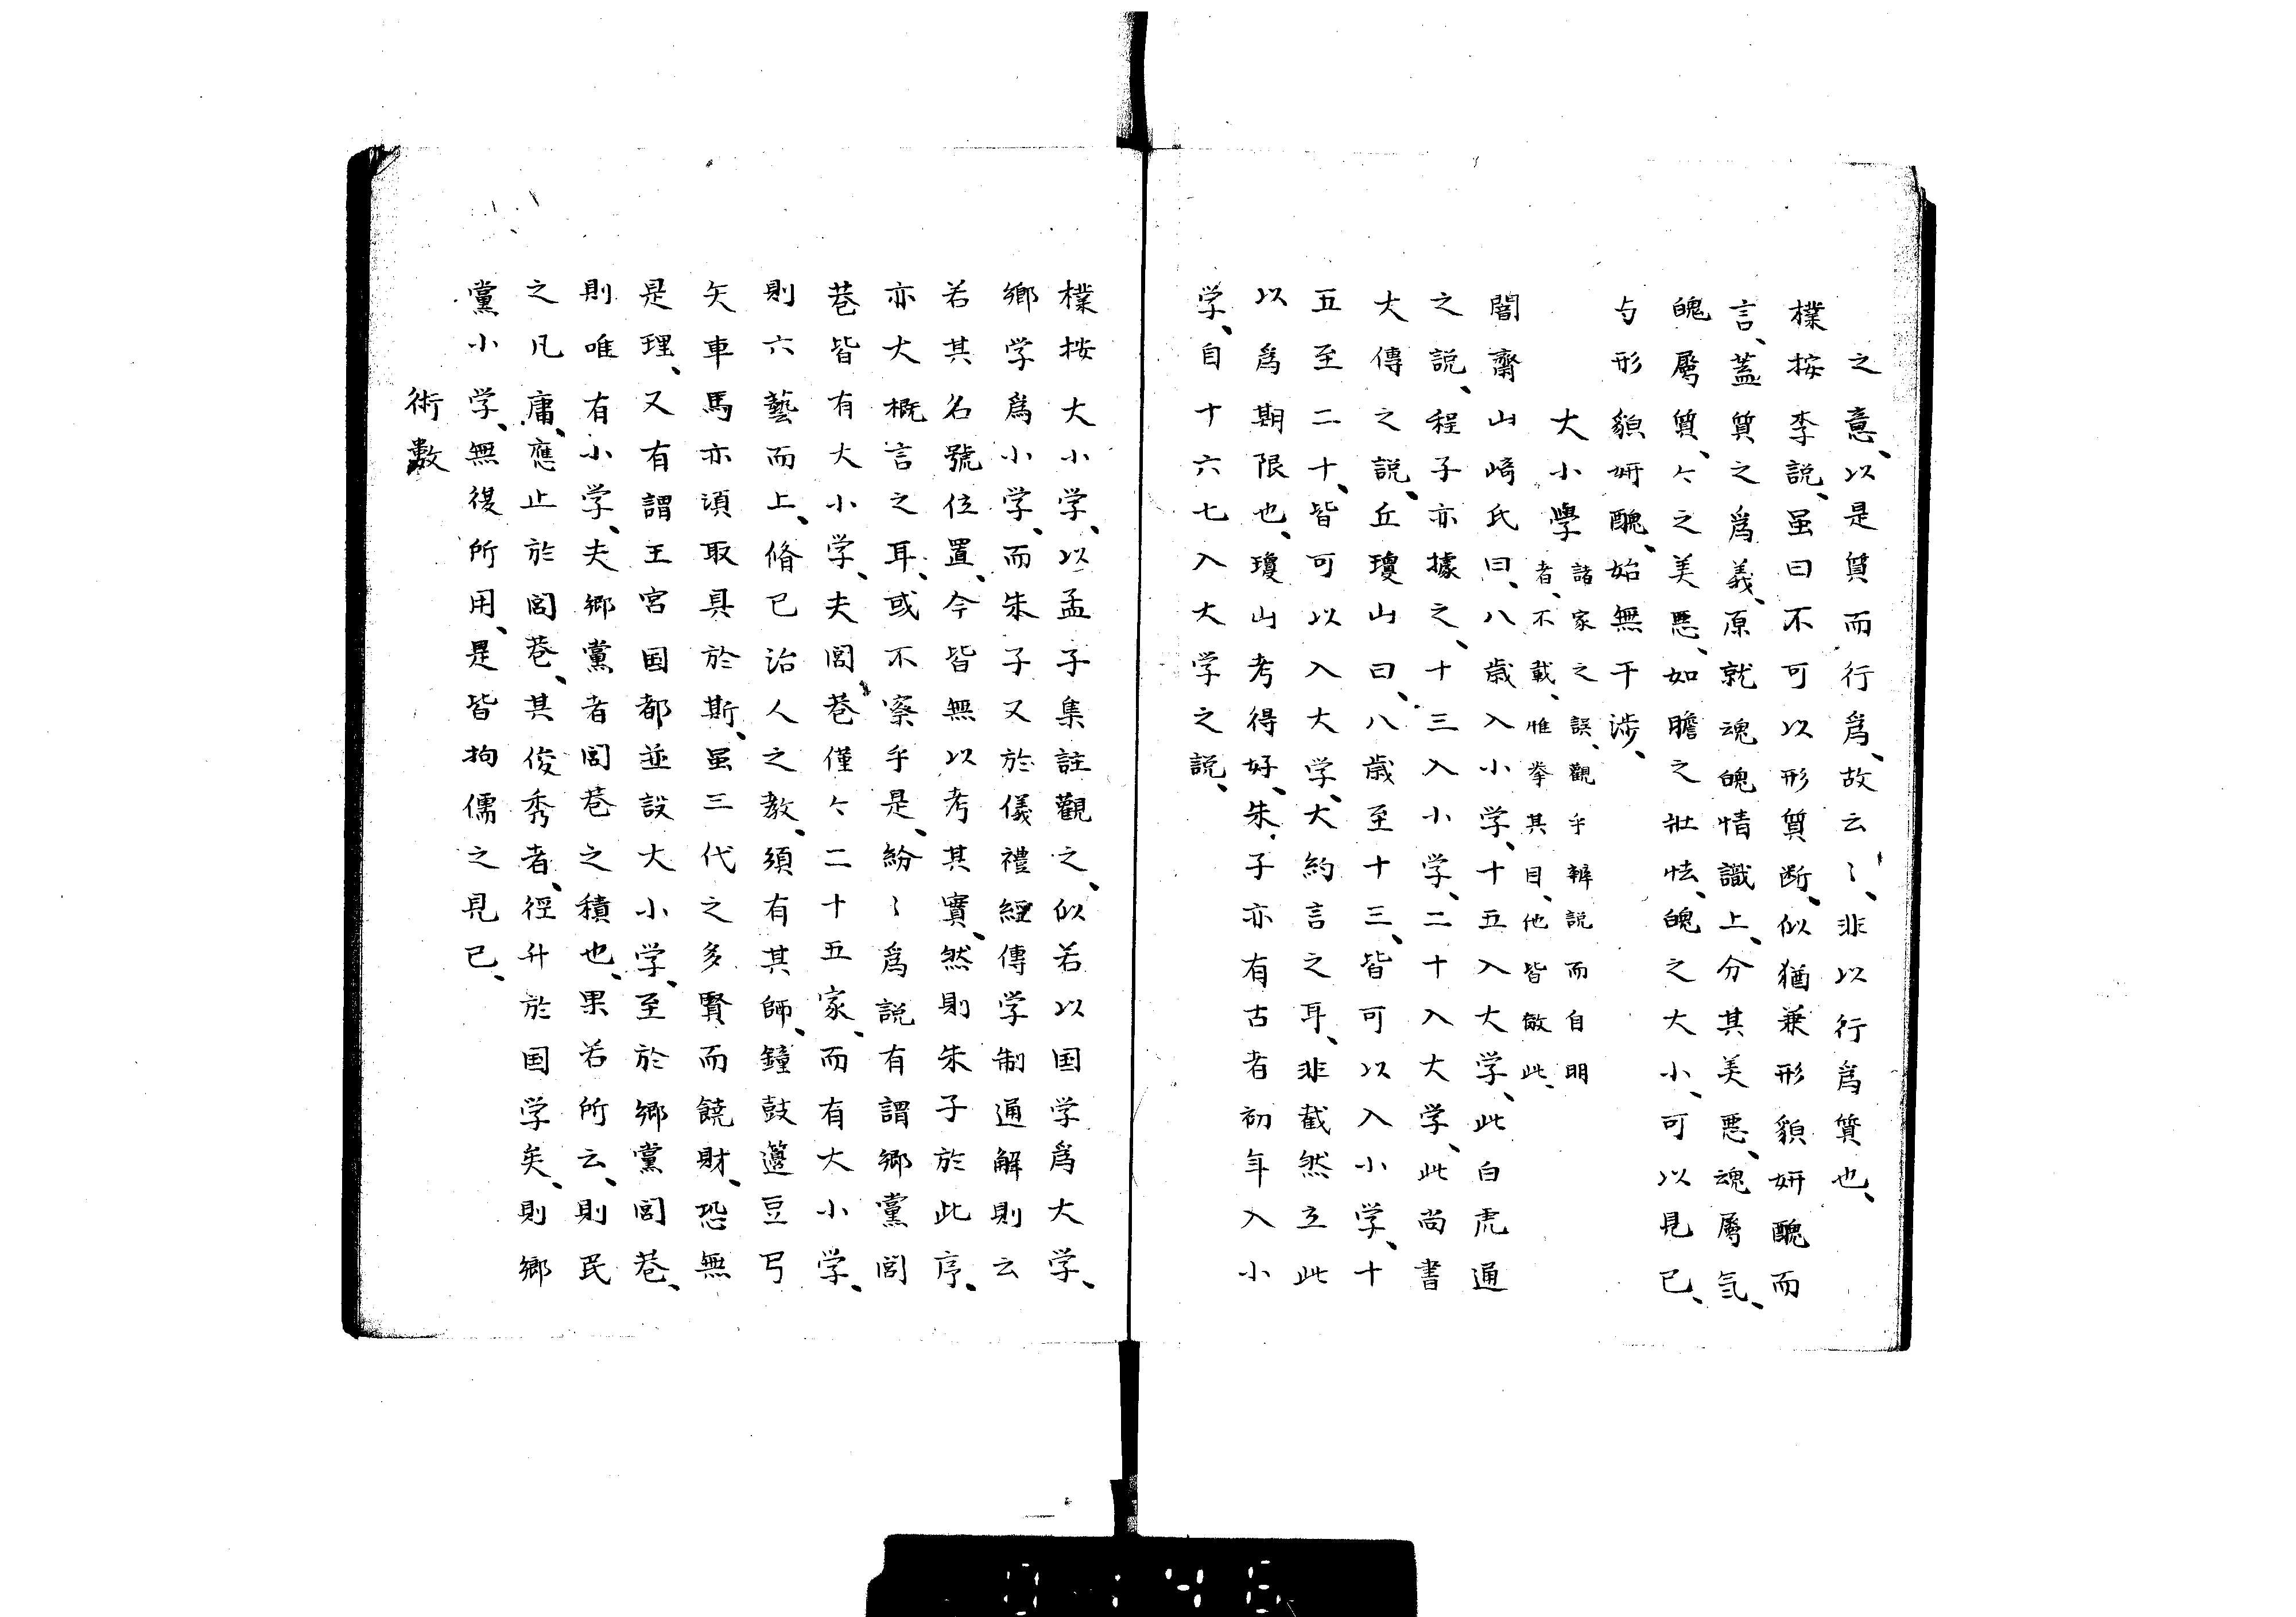 之意、以是質而行為、故云〻、非以行為質也、
樸按李説、虽曰不可以形質断、似猶兼形貌妍醜而
言、蓋質之為義、原就魂魄情識上、分其美悪、魂属気、
魄属質、々之美悪、如膽之壮怯、魄之大小、可以見已、
与形貌妍醜、始無干渉、
大小學 諸家之誤、觀乎辨説而自明
者、不載、惟挙其目、他皆倣此、
闇齋山﨑氏曰、八歳入小学、十五入大学、此白虎通
之説、程子亦據之、十三入小学、二十入大学、此尚書
大傳之説、丘瓊山曰、八歳至十三、皆可以入小学、十
五至二十、皆可以入大学、大約言之耳、非截然立此
以為期限也、瓊山考得好、朱子亦有古者初年入小
学、自十六七入大学之説、
樸按大小学、以孟子集註觀之、似若以国学為大学、
郷学為小学、而朱子又於儀禮經傳学制通解則云
若其名號位置、今皆無以考其實、然則朱子於此序、
亦大概言之耳、或不察乎是、紛〻為説有謂郷黨閭
巷皆有大小学、夫閭巷僅々二十五家、而有大小学、
則六藝而上、脩已治人之教、須有其師、鐘鼓籩豆弓
矢車馬亦須取具於斯、虽三代之多賢而饒財、恐無
是理、又有謂王宮国都並設大小学、至於郷黨閭巷、
則唯有小学、夫郷黨者閭巷之積也、果若所云、則民
之凡庸、應止於閭巷、其俊秀者、徑升於国学矣、則郷
黨小学、無復所用、是皆拘儒之見已、
術數
0146